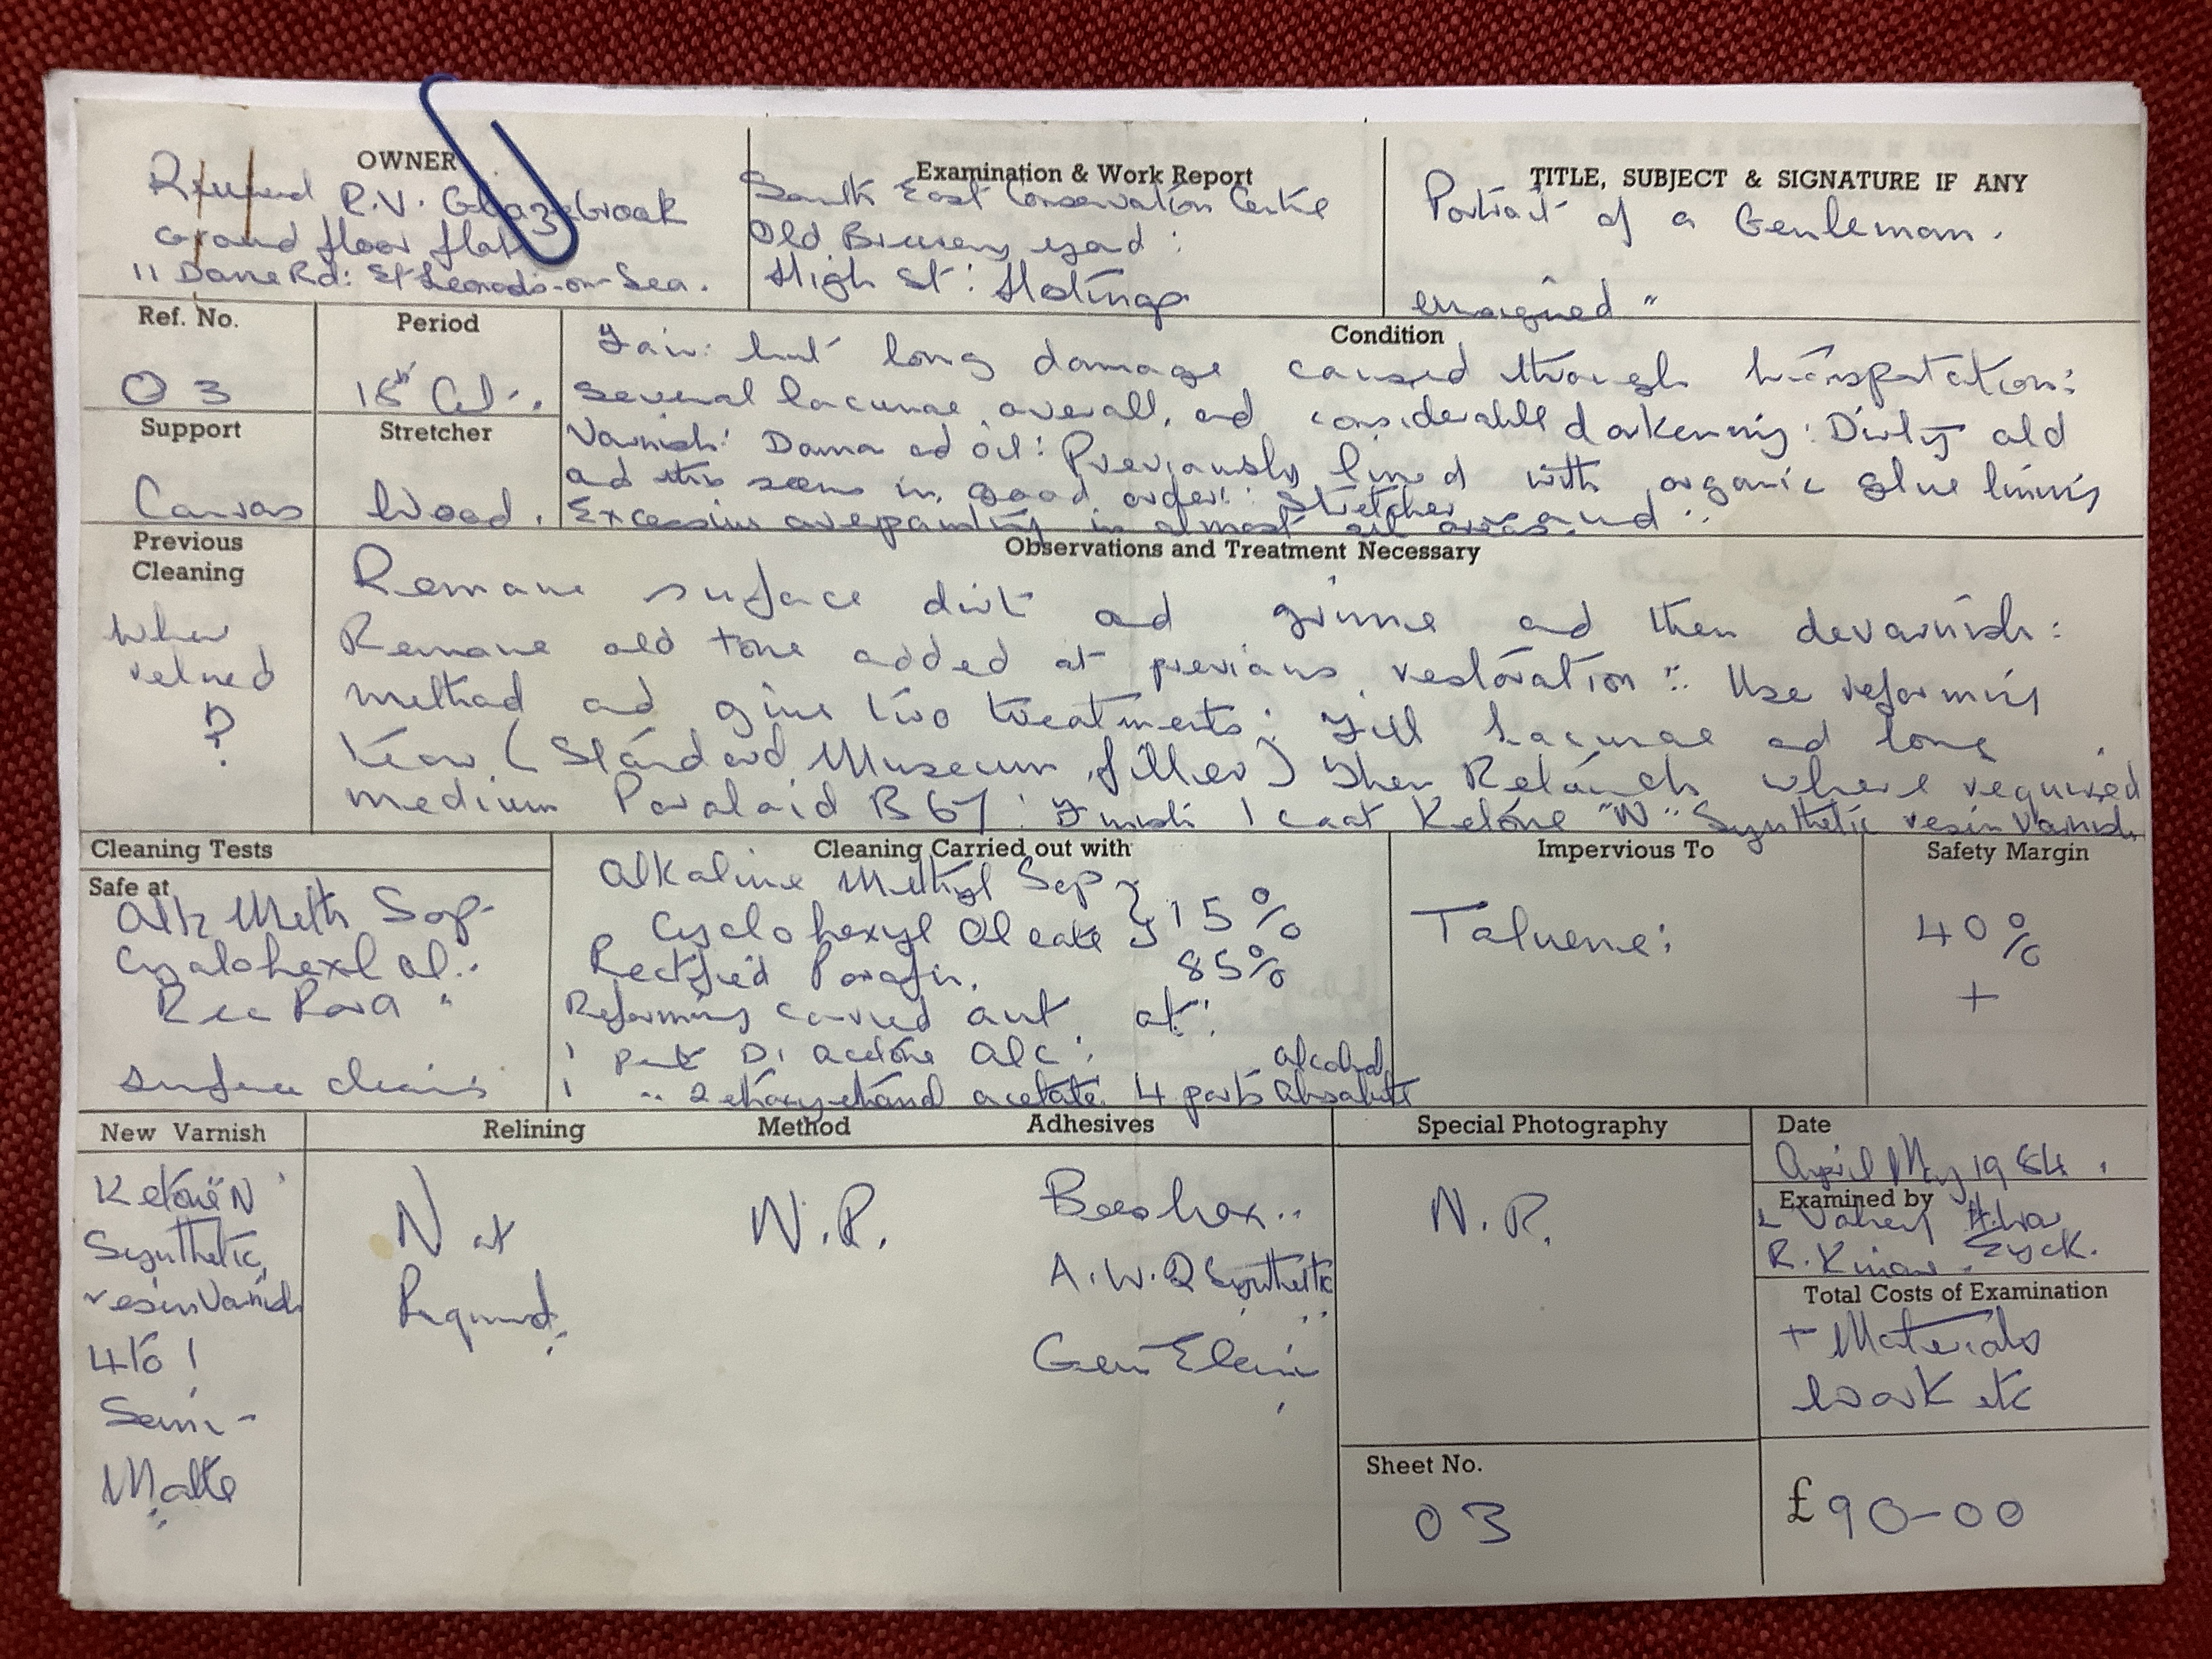 OWNER
R.V. Glazebrook
Ground floor flat
11 Dane Rd: St Leonards-on-Sea.
Examination & Work Report
South East Conservation Centre
Old Brewery yard:
High St: Hastings
TITLE, SUBJECT & SIGNATURE IF ANY
Portrait of a Gentleman.
unsigned "
Ref. No.
03
Period
18th Cent.
Support
Canvas
Stretcher
Wood.
Condition
Fair: but long damage caused through transportation:
Several lacunae overall, and considerable darkening: Dirty old
Varnish: Dama ad oil: Previously lined with organic glue lining
ad this seems in good order: Stretcher sound:
Excessive overpainting in almost all areas.
Previous
Cleaning
When
relined
?
Observations and Treatment Necessary
Remove surface dirt ad grime and then devarnish:
Remove old tone added at previous restoration:: Use reforming
method ad give two treatments: Fill lacunae ad long
tear (Standard Museum filler) Then Retouch where required
medium Paralaid B67: Finish 1 coat Ketone "N" Synthetic resin Varnish
Cleaning Tests
Safe at
Alk Meth Sop-
Cyclohexl Ol..
Rec Para "
Surface cleaning
Cleaning Carried out with
Alkaline Methyl Sop }
Cyclohexyl Oleate } 15%
Rectified Parafin. 85%
Reforming carried out at:
1 part Di acetone Alc:
1 " 2 ethoxyethanol acetate 4 parts Absolute alcohol
Impervious To
Toluene:
Safety Margin
40%
+
New Varnish
Ketone "N"
Synthetic
resin Varnish
4 to 1
Semi-
Matte
Relining
Not
Required
Method
N.R.
Adhesives
Beeswax..
A.W.2 Synthetic
Gum Elemi
Special Photography
N.R.
Date
April May 1984.
Examined by
R.
Total Costs of Examination
+ Materials
Work etc
Sheet No.
03
£90-00